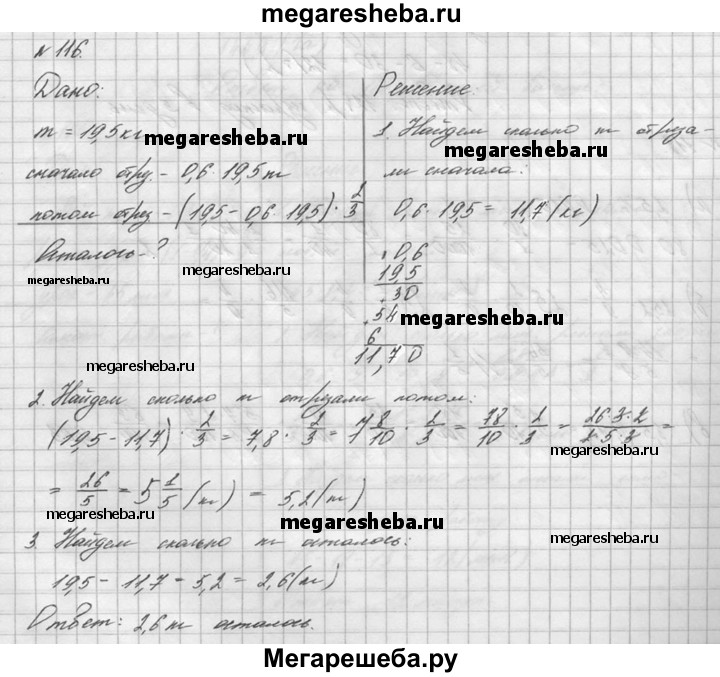 megaresheba.ru
№ 116.
Дано:
m = 19,5 кг
megaresheba.ru
сначало отру. - 0,6 · 19,5 m
потом отрез - (19,5 - 0,6 · 19,5) · 2/3
Осталось - ?
megaresheba.ru
megaresheba.ru
Решение:
1. Найдем сколько m отреза-
megaresheba.ru
ли сначала:
0,6 · 19,5 = 11,7 (кг)
0,6
19,5
30
54
megaresheba.ru
6
11,70
megaresheba.ru
2. Найдем сколько m отрезали потом:
(19,5 - 11,7) · 2/3 = 7,8 · 2/3 = 7 8/10 · 2/3 = 78/10 · 2/3 = 26·3·2/2·5·3 =
megaresheba.ru
= 26/5 = 5 1/5 (кг) = 5,2 (m)
megaresheba.ru
megaresheba.ru
megaresheba.ru
3. Найдем сколько m осталось:
19,5 - 11,7 - 5,2 = 2,6 (кг)
megaresheba.ru
megaresheba.ru
Ответ: 2,6 m осталось.
Мегарешеба.ру